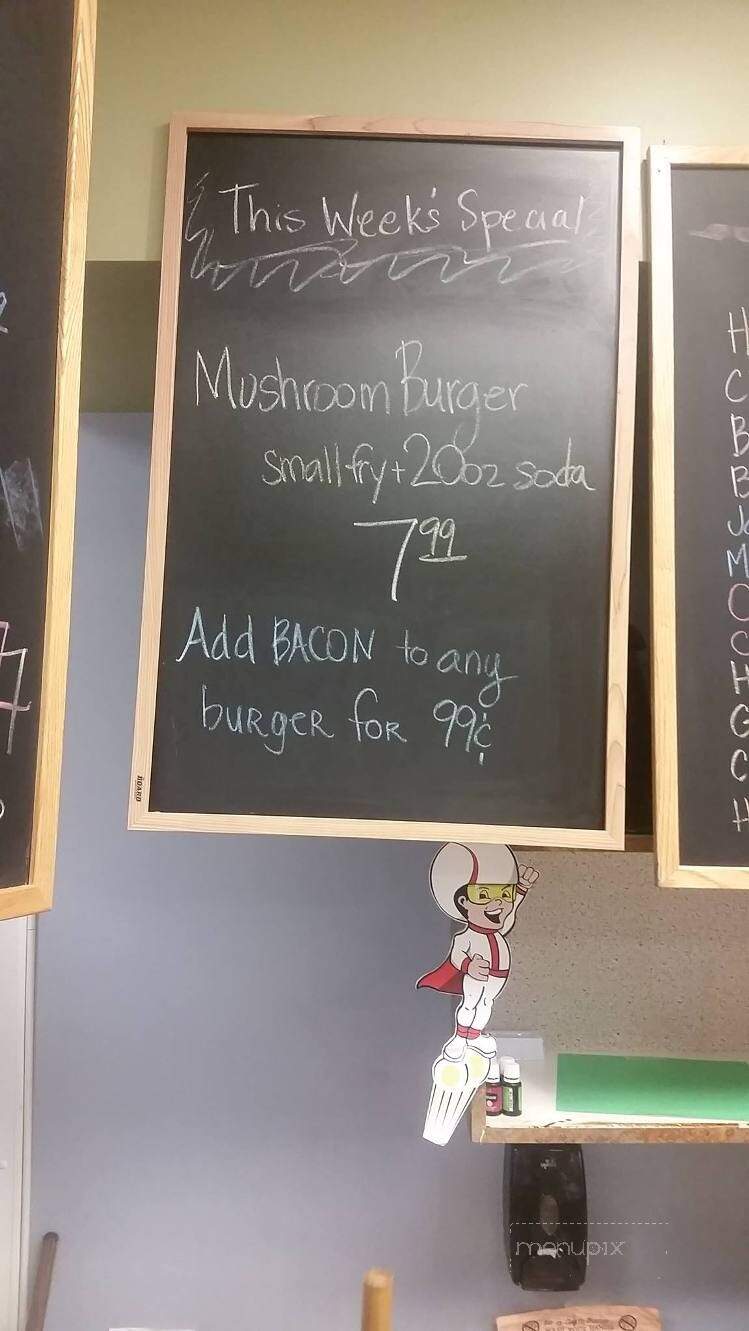 This Week's Special
Mushroom Burger
small fry + 20oz soda
7 99
Add BACON to any
burger for 99¢
BOARD
H
C
B
B
Ja
M
C
C
H
G
C
H
menupix